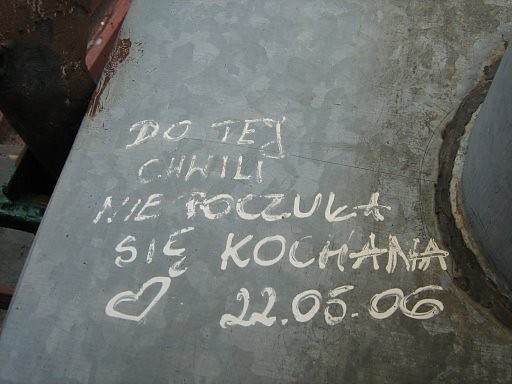 DO TEJ
CHWILI
NIE POCZUŁA
SIĘ KOCHANA
22.05.06